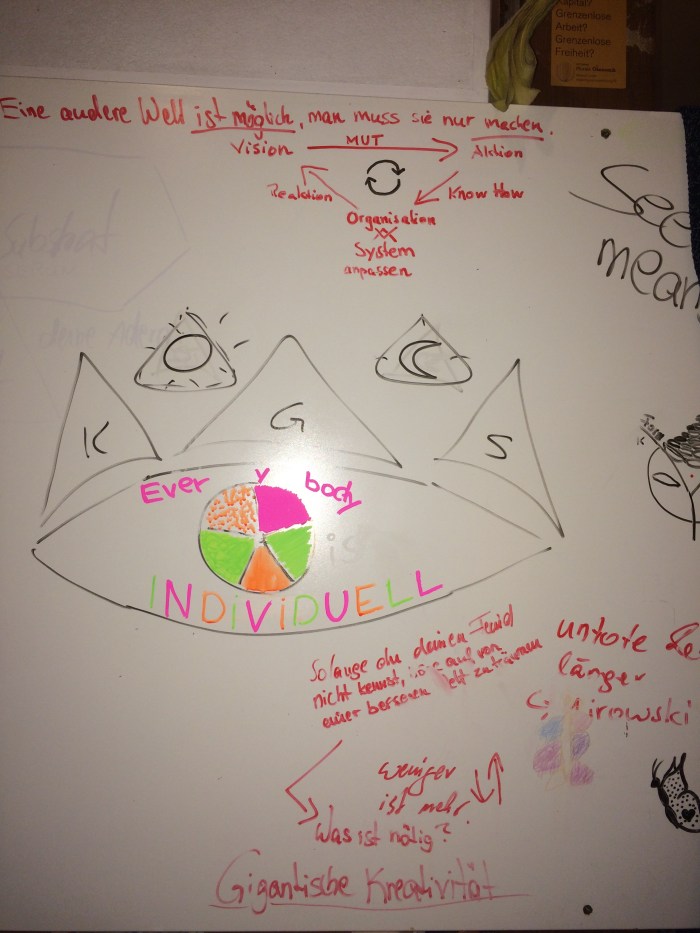 Kapital?
Grenzenlose
Arbeit?
Grenzenlose
Freiheit?
Eine andere Welt ist möglich, man muss sie nur machen.
Vision
MUT
Aktion
Reaktion
Know How
Organisation
System
anpassen
Substrat
See
mean
K
G
S
Every body
is
INDiViDUELL
From
Solange du deinen Feind
nicht kennst, höre auf von
einer besseren Welt zu träumen
untote
länger
Mirowski
weniger
ist mehr
Was ist nötig?
Gigantische Kreativität